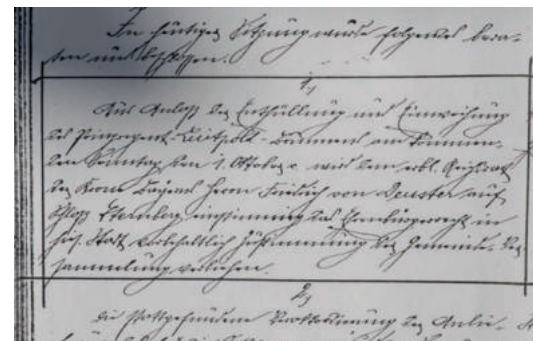 In heutiger Sitzung wurde folgendes bera-
ten und beschlossen.
1,
Aus Anlaß der Enthüllung und Einweihung
des Prinzregent-Luitpold-Brunnens am kommen-
den Sonntag, den 1. Oktober c. wird dem erbl. Reichsrat
der Krone Bayerns Herrn Friedrich von Deuster auf
Schloß Sternberg einstimmig das Ehrenbürgerrecht in
hies. Stadt vorbehaltlich Zustimmung der Gemeinde-Ver-
sammlung verliehen.
2,
Die stattgefundene